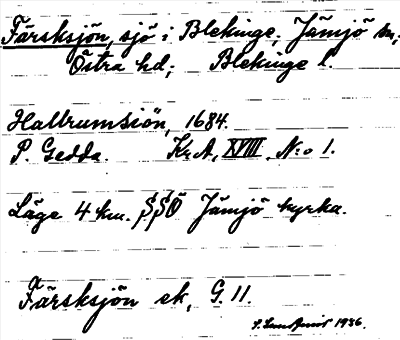 Färsksjön, sjö i Blekinge, Jämjö sn,
Östra hd; Blekinge l.
Hallrumsiön, 1684.
P. Gedda. Kr.A, XVIII, N:o 1.
Läge 4 km. SSÖ Jämjö kyrka.
Färsksjön ek, G. 11.
1936.